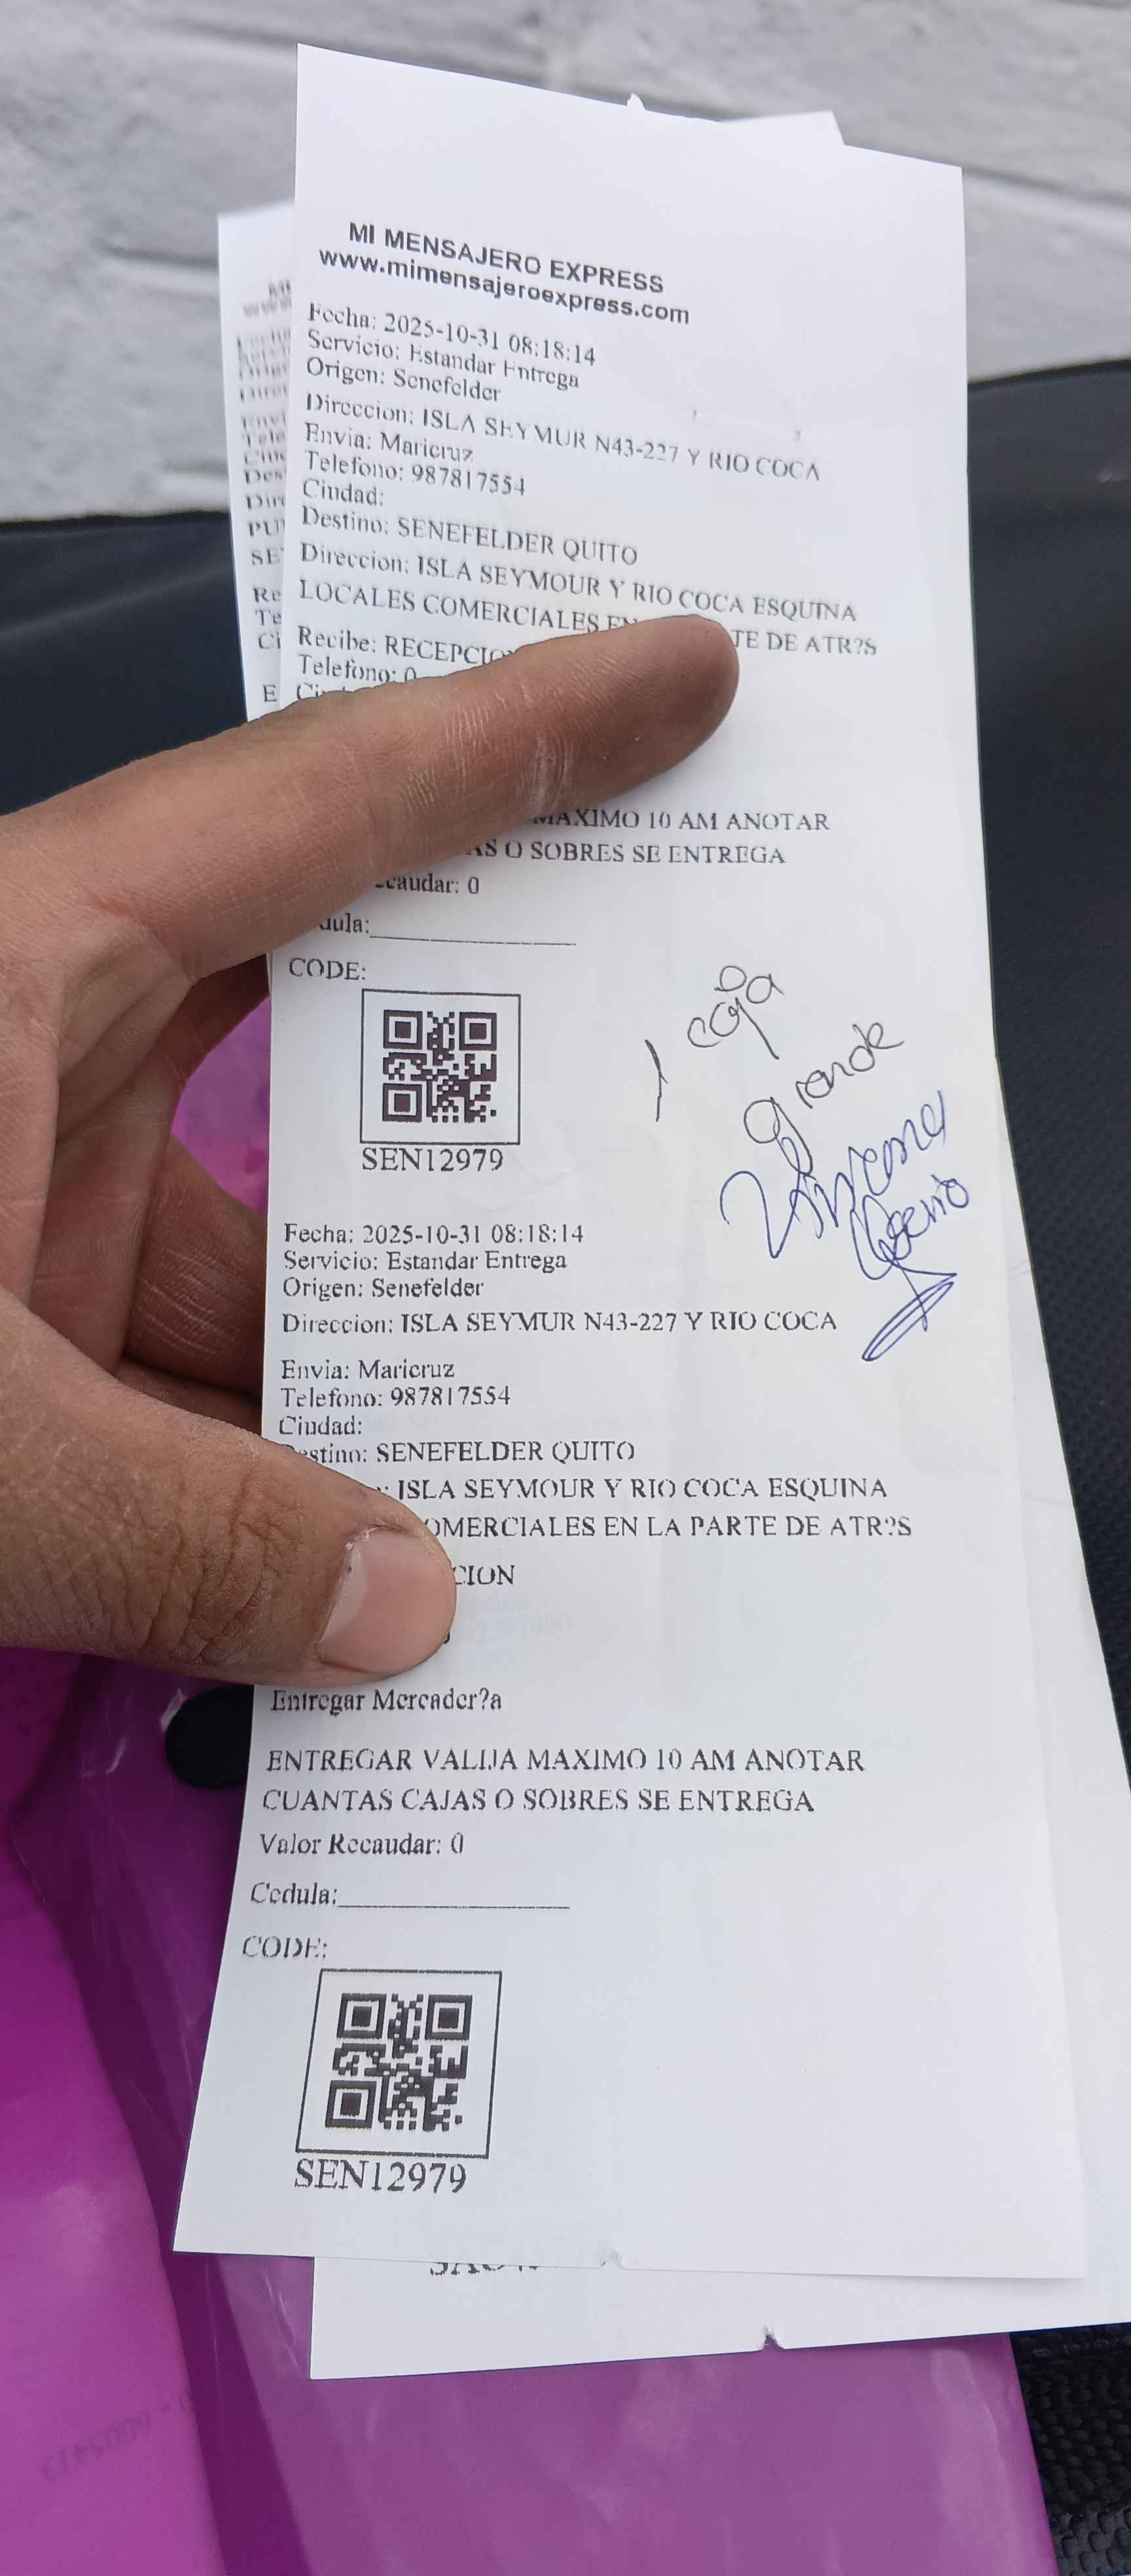 MI MENSAJERO EXPRESS
www.mimensajeroexpress.com
Fecha: 2025-10-31 08:18:14
Servicio: Estandar Entrega
Origen: Senefelder
Direccion: ISLA SEYMUR N43-227 Y RIO COCA
Envia: Maricruz
Telefono: 987817554
Ciudad:
Destino: SENEFELDER QUITO
Direccion: ISLA SEYMOUR Y RIO COCA ESQUINA
LOCALES COMERCIALES EN TE DE ATR?S
Recibe: RECEPCIO
Telefono: 0
MAXIMO 10 AM ANOTAR
AS O SOBRES SE ENTREGA
caudar: 0
dula:
CODE:
SEN12979
1 caja
grande
Fecha: 2025-10-31 08:18:14
Servicio: Estandar Entrega
Origen: Senefelder
Direccion: ISLA SEYMUR N43-227 Y RIO COCA
Envia: Maricruz
Telefono: 987817554
Ciudad:
estino: SENEFELDER QUITO
: ISLA SEYMOUR Y RIO COCA ESQUINA
OMERCIALES EN LA PARTE DE ATR?S
CION
Entregar Mercader?a
ENTREGAR VALIJA MAXIMO 10 AM ANOTAR
CUANTAS CAJAS O SOBRES SE ENTREGA
Valor Recaudar: 0
Cedula:
CODE:
SEN12979